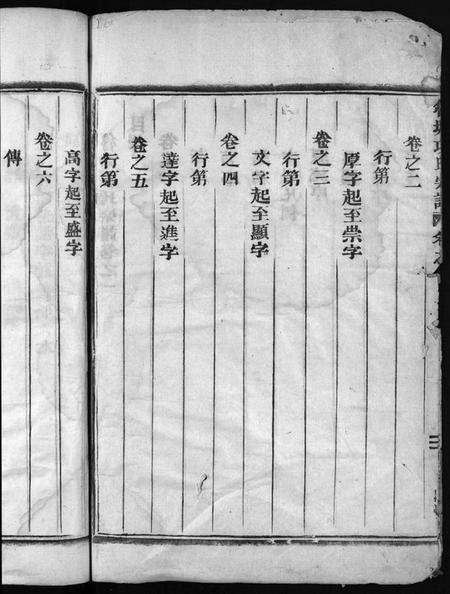 卷之二
行第
厚字起至崇字
卷之三
行第
文字起至顯字
卷之四
行第
達字起至進字
卷之五
行第
高字起至盛字
卷之六
傳